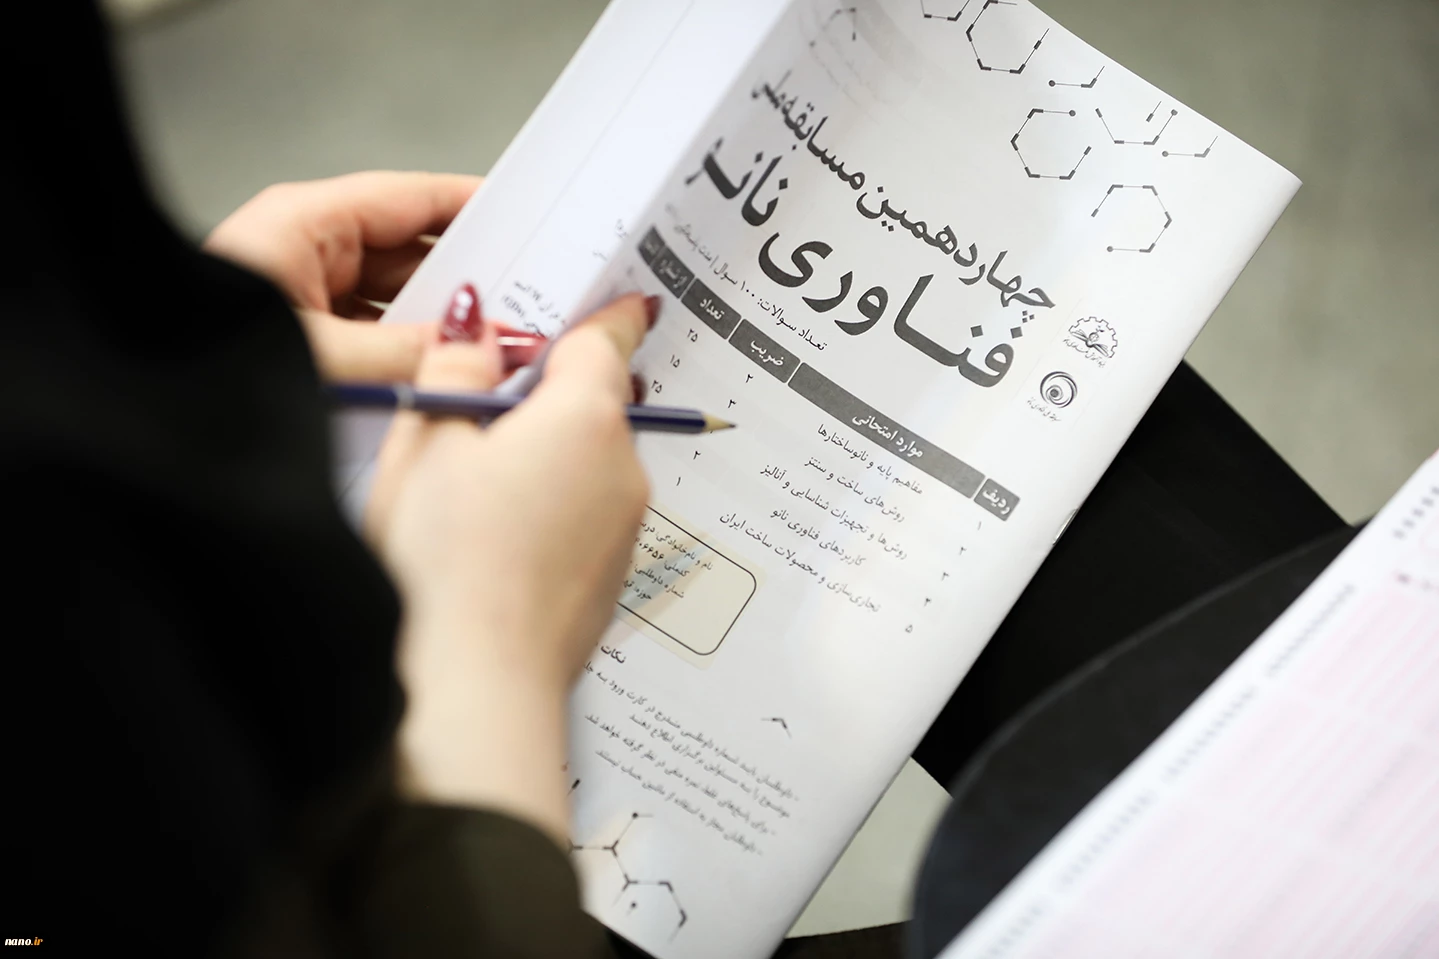 چهاردهمین مسابقه ملی
فناوری نانو
تعداد سوالات: ۱۰۰ سوال | مدت پاسخگویی
ردیف موارد امتحانی ضریب تعداد از شماره
۱ مفاهیم پایه و نانوساختارها ۲ ۲۵
۲ روش‌های ساخت و سنتز ۳ ۱۵
۳ روش‌ها و تجهیزات شناسایی و آنالیز ۲۵
۴ کاربردهای فناوری نانو ۲
۵ تجاری‌سازی و محصولات ساخت ایران ۱
نام و نام‌خانوادگی
کدملی
شماره داوطلبی:
حوزه:
نکات
- داوطلبان باید شماره داوطلبی مندرج در کارت ورود به
موضوع را به مسئولین برگزاری اطلاع دهند
- برای پاسخ‌های غلط نمره منفی در نظر گرفته خواهد شد.
- داوطلبان مجاز به استفاده از ماشین حساب نیستند.
nano.ir